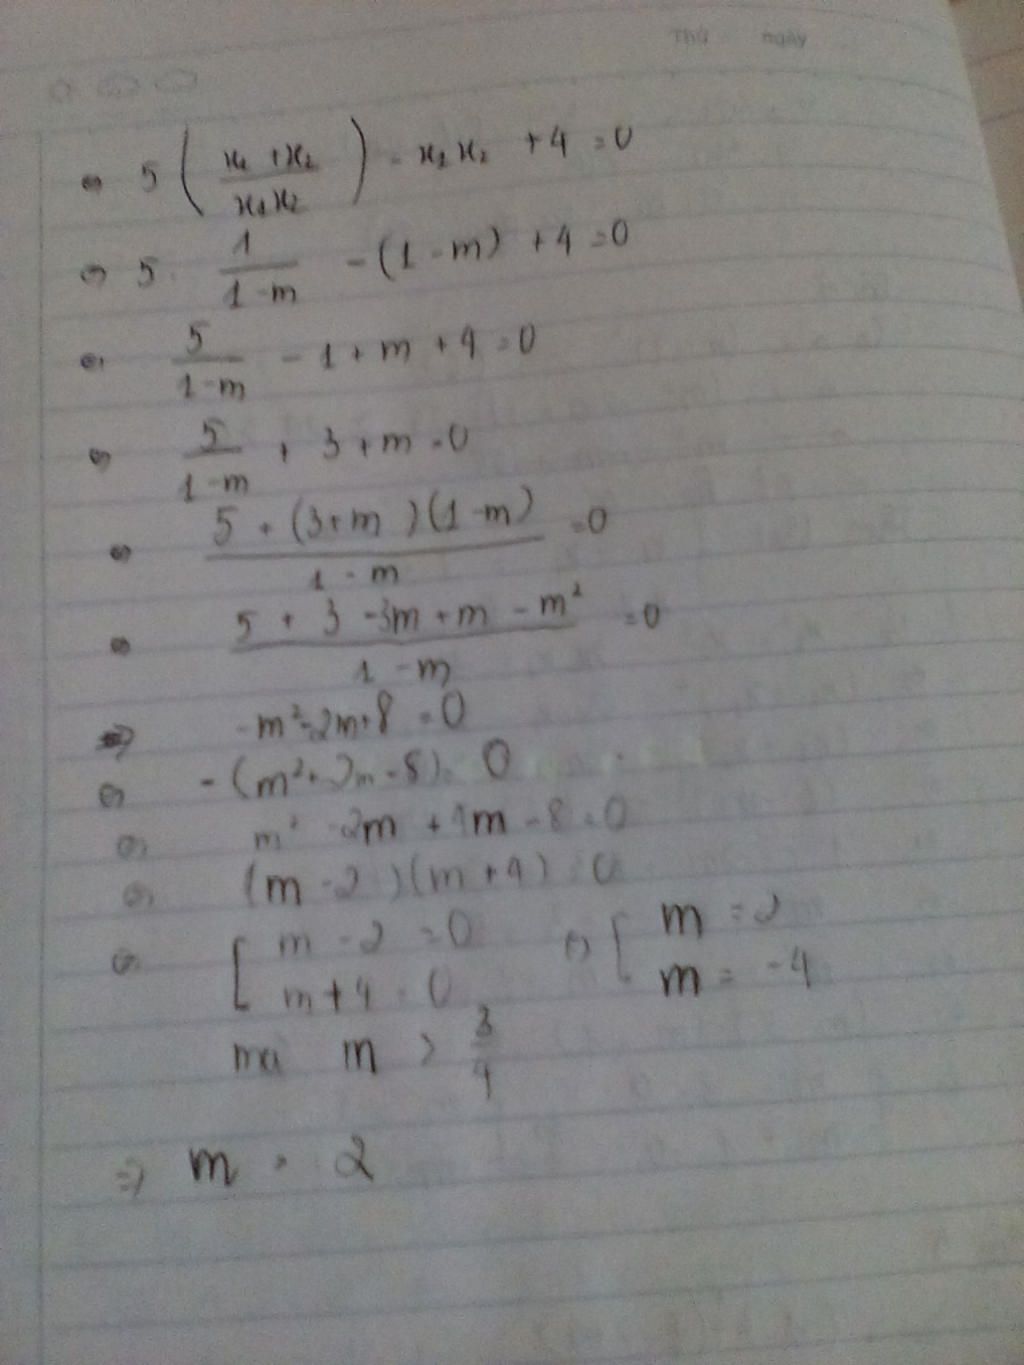 Thứ ngày
⇔ 5 ( (x₁ + x₂) / (x₁x₂) ) - x₁x₂ + 4 = 0
⇔ 5 . 1 / (1 - m) - (1 - m) + 4 = 0
⇔ 5 / (1 - m) - 1 + m + 4 = 0
⇔ 5 / (1 - m) + 3 + m = 0
⇔ (5 + (3 + m)(1 - m)) / (1 - m) = 0
⇔ (5 + 3 - 3m + m - m²) / (1 - m) = 0
⇒ -m² - 2m + 8 = 0
⇔ -(m² + 2m - 8) = 0
⇔ m² - 2m + 4m - 8 = 0
⇔ (m - 2)(m + 4) = 0
⇔ [ m - 2 = 0 ⇔ [ m = 2
m + 4 = 0 m = -4
mà m > 3/4
⇒ m = 2